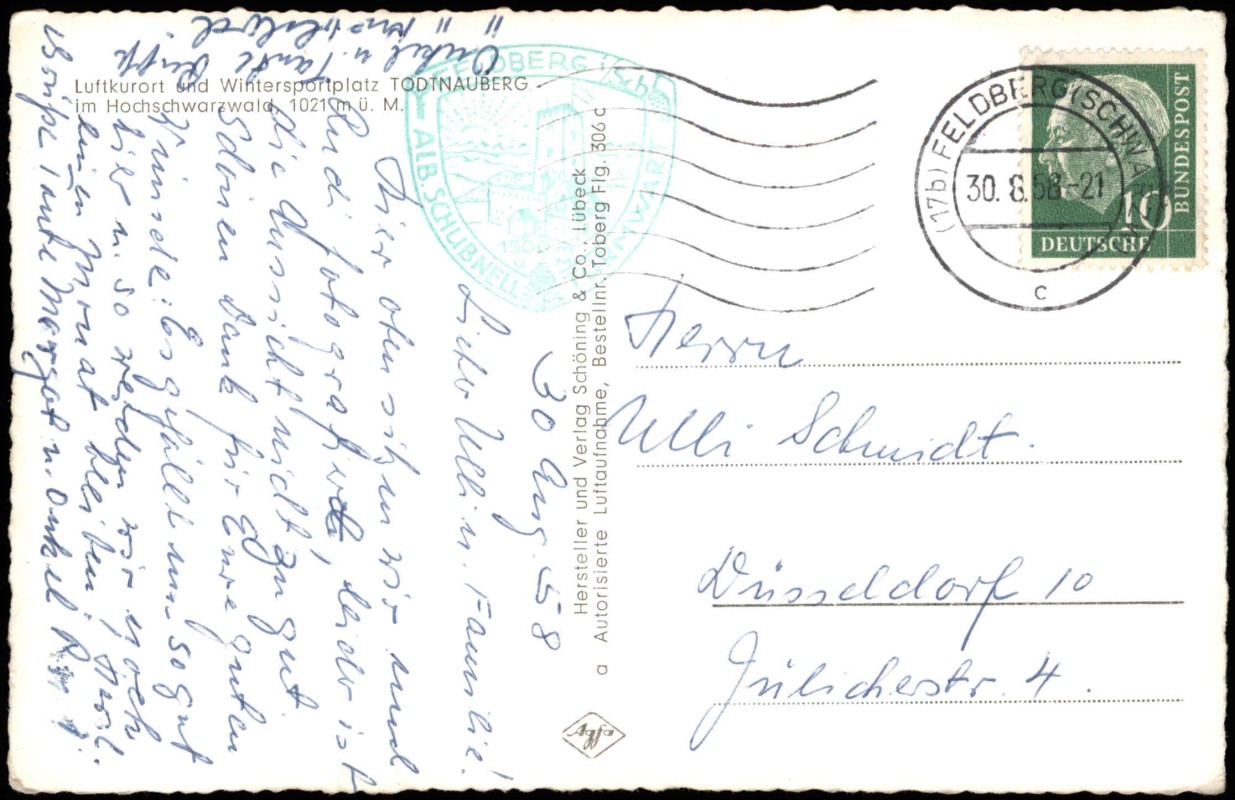 Luftkurort und Wintersportplatz TODTNAUBERG
im Hochschwarzwald, 1021 m ü. M.
30 Aug. 58
Lieber Ulli u. Familie!
Hier oben sitzen wir und
Rudi fotografiert, leider ist
die Aussicht nicht zu gut
Schönen Dank für Eure guten
Wünsche. Es gefällt uns so gut
hier u. so werden wir noch
einen Monat bleiben. Herzl.
Grüße Tante Margot u. Onkel
Onkel u. Tante
" "
FELDBERG (Schw
ALB. SCHUBNELL
1500 m
Hersteller und Verlag Schöning & Co., Lübeck
a Autorisierte Luftaufnahme, Bestellnr. Toberg Flg. 306 c
Agfa
(17b) FELDBERG (SCHWA
30. 8. 58-21
c
DEUTSCHE
BUNDESPOST
10
Herrn
Ulli Schmidt.
Düsseldorf 10
Jülicherstr. 4.